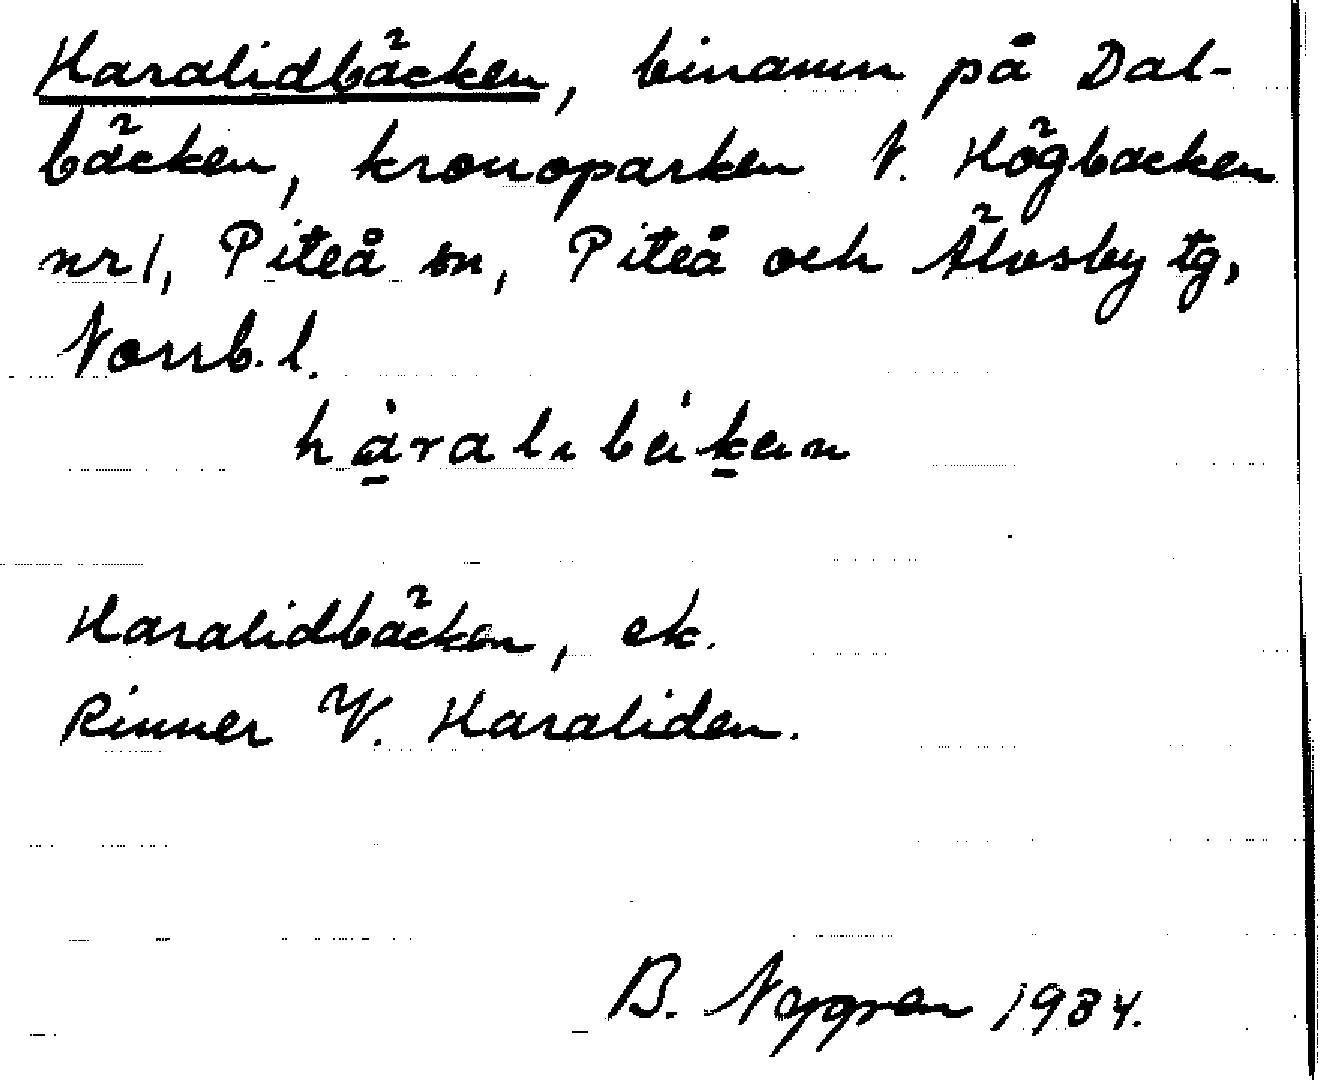 Haralidbäcken, binamn på Dal-
bäcken, kronoparken V. Högbacken
nr 1, Piteå sn, Piteå och Älvsby tg,
Norrb. l.
Haralidbäcken, ek.
Rinner V. Haraliden.
B. Nygren 1934.